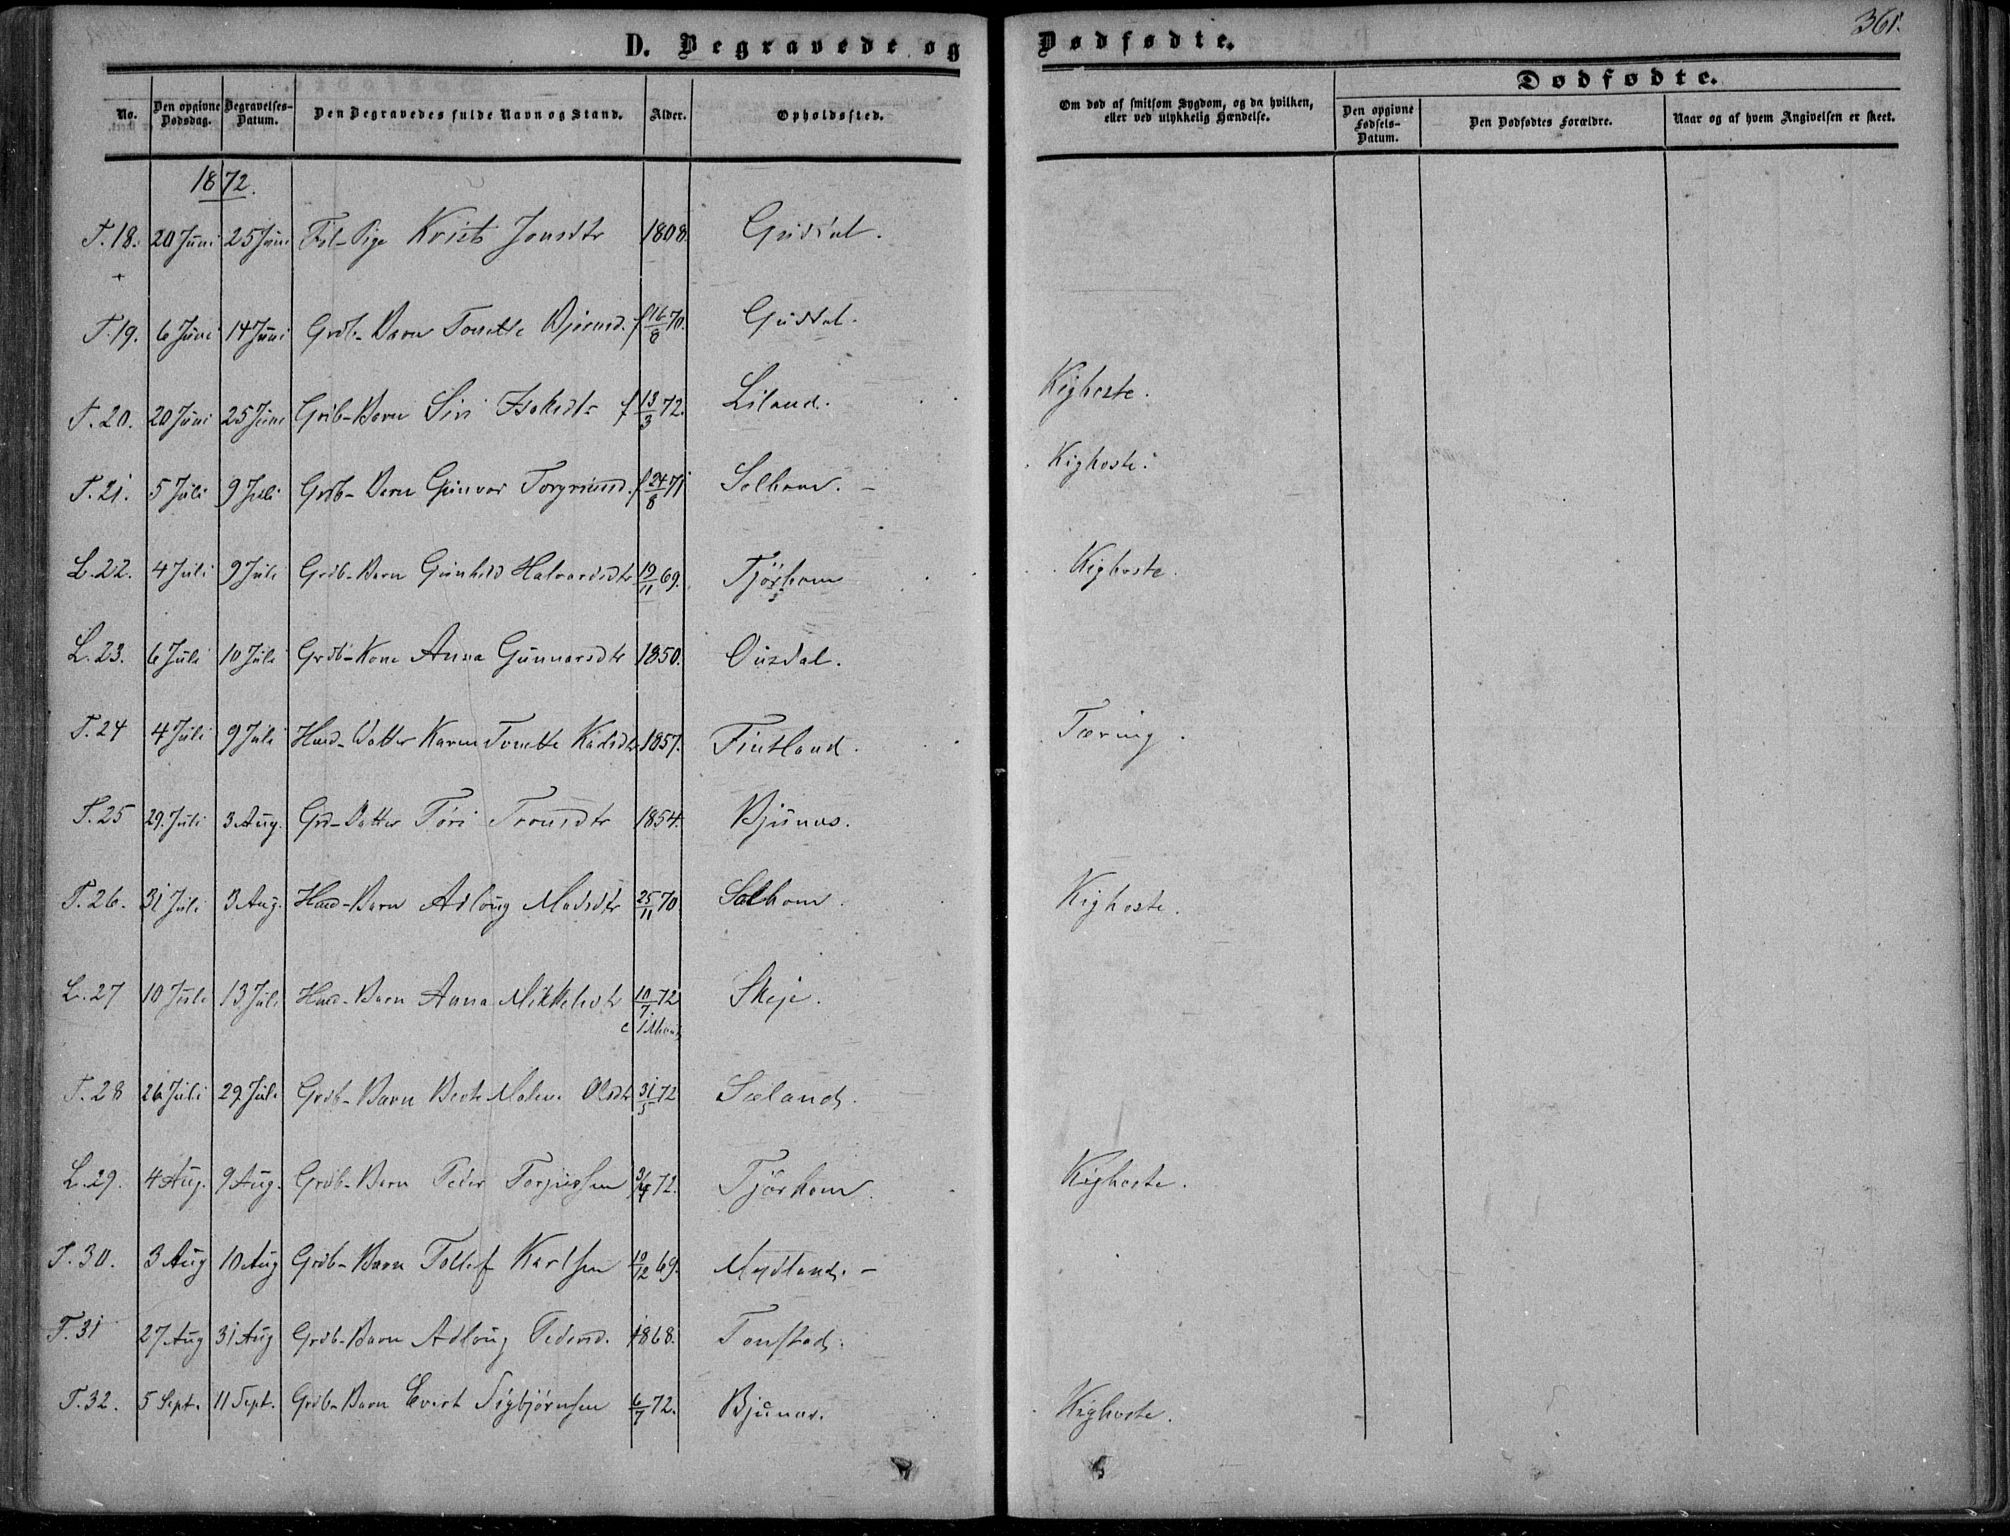 361.
D. Begravede og Dødfødte.
Dødfødte.
No.
Den opgivne Dødsdag.
Begravelses-Datum.
Den Begravedes fulde Navn og Stand.
Alder.
Opholdssted.
Om død af smitsom Sygdom, og da hvilken, eller ved ulykkelig Hændelse.
Den opgivne Fødsels-Datum.
Den Dødfødtes Forældre.
Naar og af hvem Angivelsen er skeet.
1872.
T. 18. 20 Juni 25 Juni Pige Jonsdtr 1808.
T. 19. 6 Juni 14 Juni Grdb-Barn Tonette f 16/8 70.
T. 20. 20 Juni 25 Juni Grdb-Barn Siri f 13/3 72. Liland. Kighoste.
T. 21. 5 Juli 9 Juli Grdb-Barn Gunvor f 24/8 71 Solhom. - Kighoste.
L. 22. 4 Juli 9 Juli Grdb-Barn Gunhild Halvorsdtr 19/11 69. Tjörhom Kighoste.
L. 23. 6 Juli 10 Juli Grdb-Kone Anna Gunnarsdtr 1850. Ousdal.
T. 24 4 Juli 9 Juli Husd-Datter Karen Tonette 1857. Fintland. Tæring.
T. 25 29. Juli 3 Aug. Grd-Datter Tronsdtr 1854. Bjunes.
T. 26. 31 Juli 3 Aug. Husd-Barn Adloug Madsdtr 25/11 70 Solhom. Kighoste.
L. 27 10 Juli 13 Juli Husd-Barn Anna Mikkelsdtr 10/7 72 Skeje.
T. 28 26 Juli 29. Juli Grdb-Barn Berte Malene Olsdtr 31/5 72 Sæland.
L. 29. 4 Aug. 9 Aug. Grdb-Barn Peder 72. Tjörhom. Kighoste.
T. 30. 3 Aug 10 Aug Grdb-Barn Tollef Karlsen 12 69. -
T. 31 27 Aug 31 Aug Grdb-Barn Adloug Pedersd. 1868. Tonstad.
T. 32. 5 Sept. 11 Sept. Grdb-Barn Evert Sigbjørnsen 6/7 72. Bjunes. Kighoste.